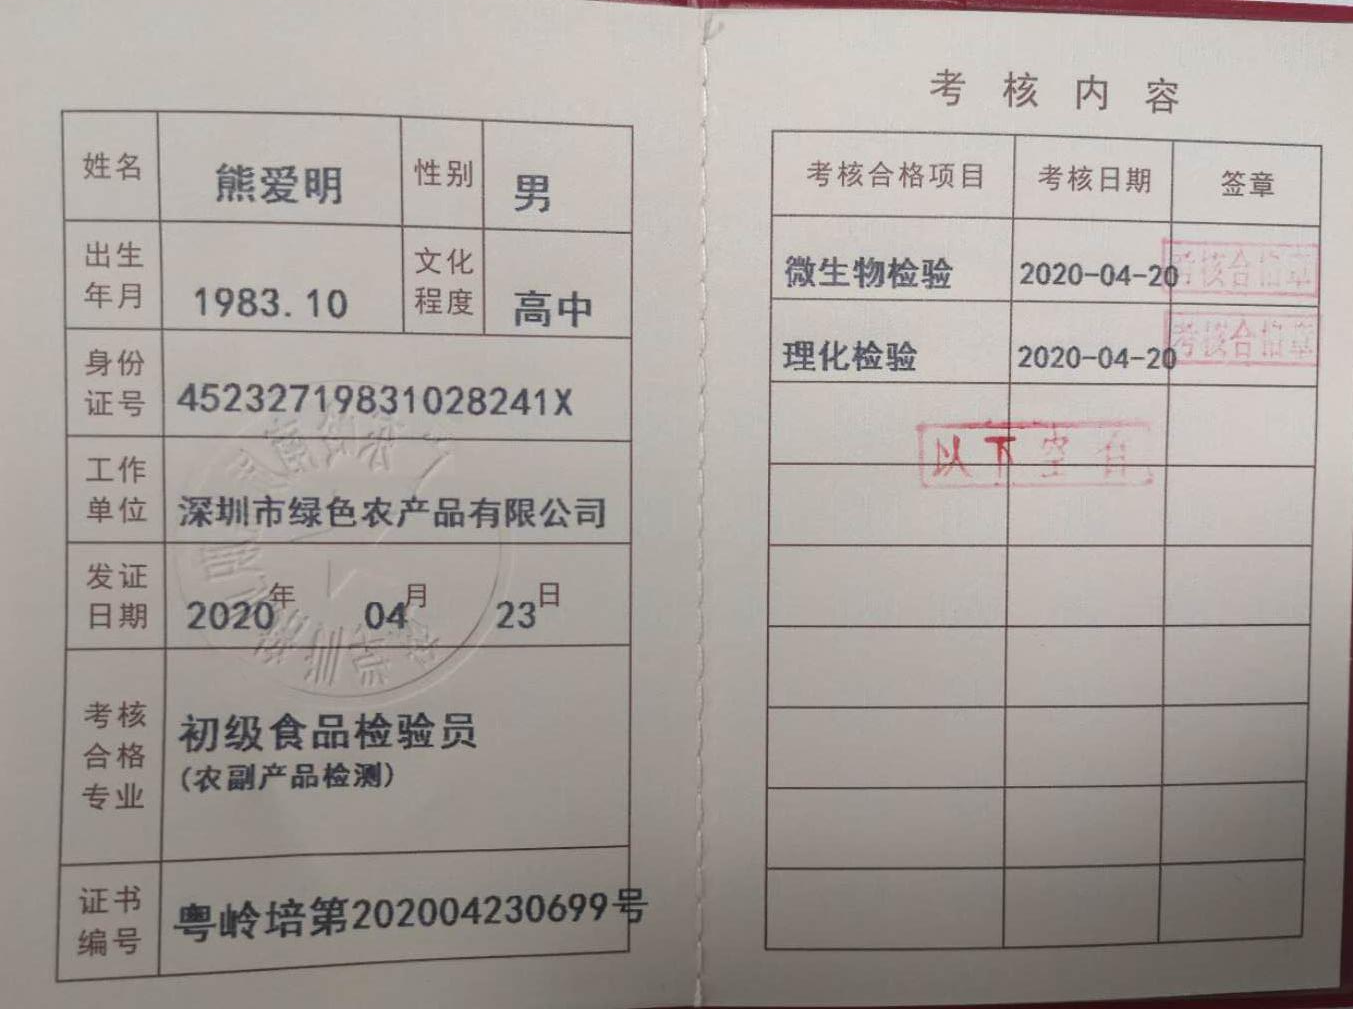 姓名 熊爱明 性别 男
出生年月 1983.10 文化程度 高中
身份证号 45232719831028241X
工作单位 深圳市绿色农产品有限公司
发证日期 2020年04月23日
考核合格专业 初级食品检验员
(农副产品检测)
证书编号 粤岭培第202004230699号
考核内容
考核合格项目 考核日期 签章
微生物检验 2020-04-20 考核合格章
理化检验 2020-04-20 考核合格章
以下空白